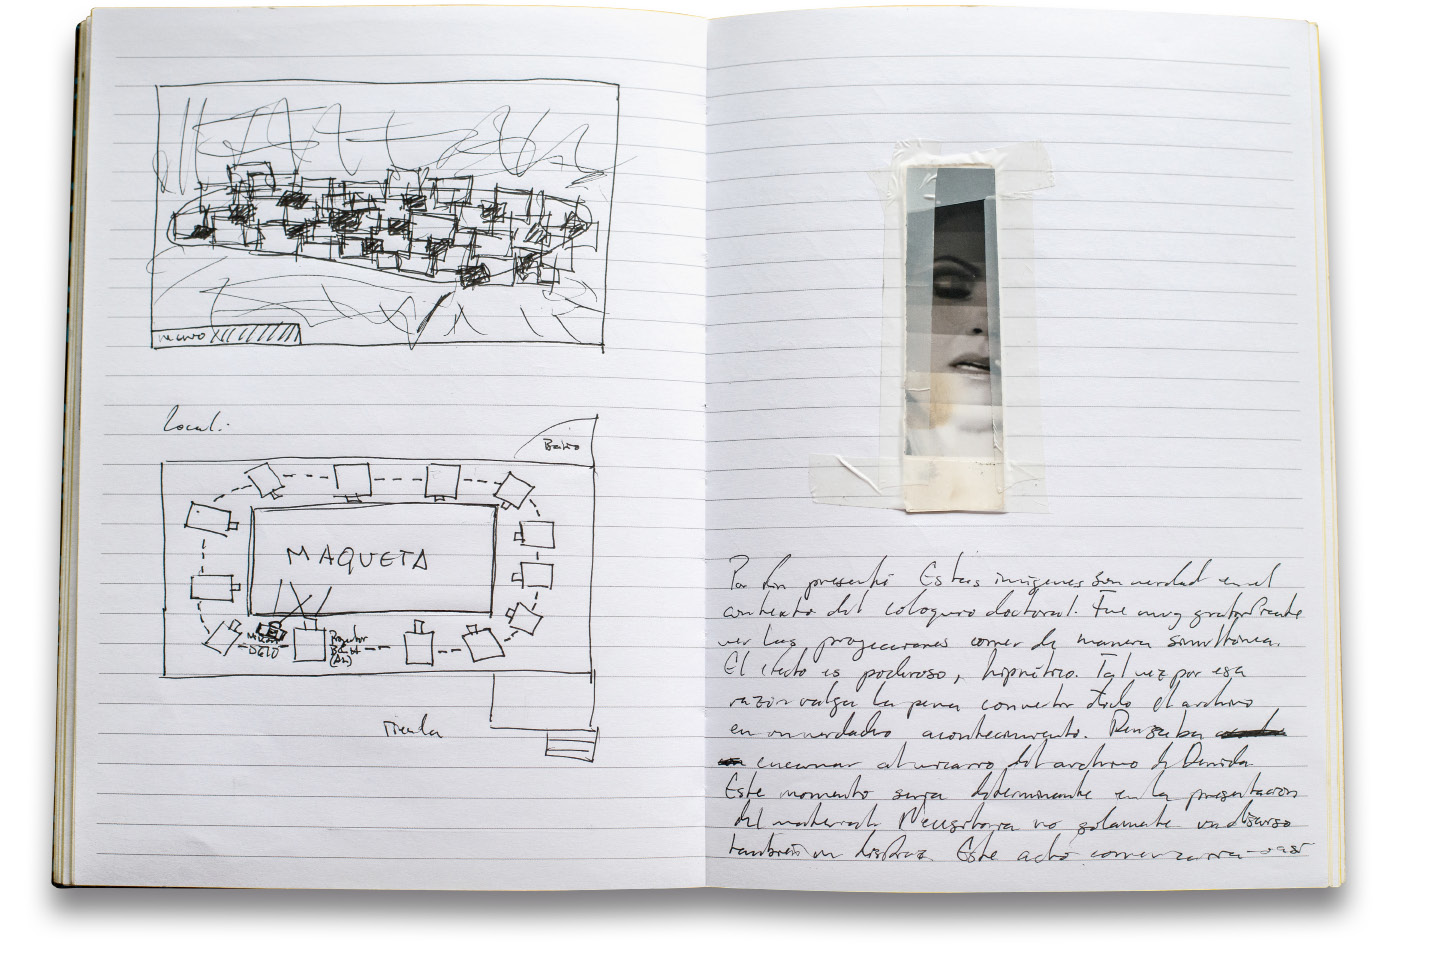 Local:
Baño
MAQUETA
Proyector
Tienda
Por fin presenté Estas imágenes son verdad en el
contexto del coloquio doctoral. Fue muy gratificante
ver las proyecciones correr de manera simultánea.
El efecto es poderoso, hipnótico. Tal vez por esa
razón valga la pena convertir todo el archivo
en un verdadero acontecimiento. Pensaba
encarnar al vicario del archivo de Derrida.
Este momento sería determinante en la presentación
del material. Necesitaría no solamente un discurso
también un disfraz. Este acto comenzaría casi